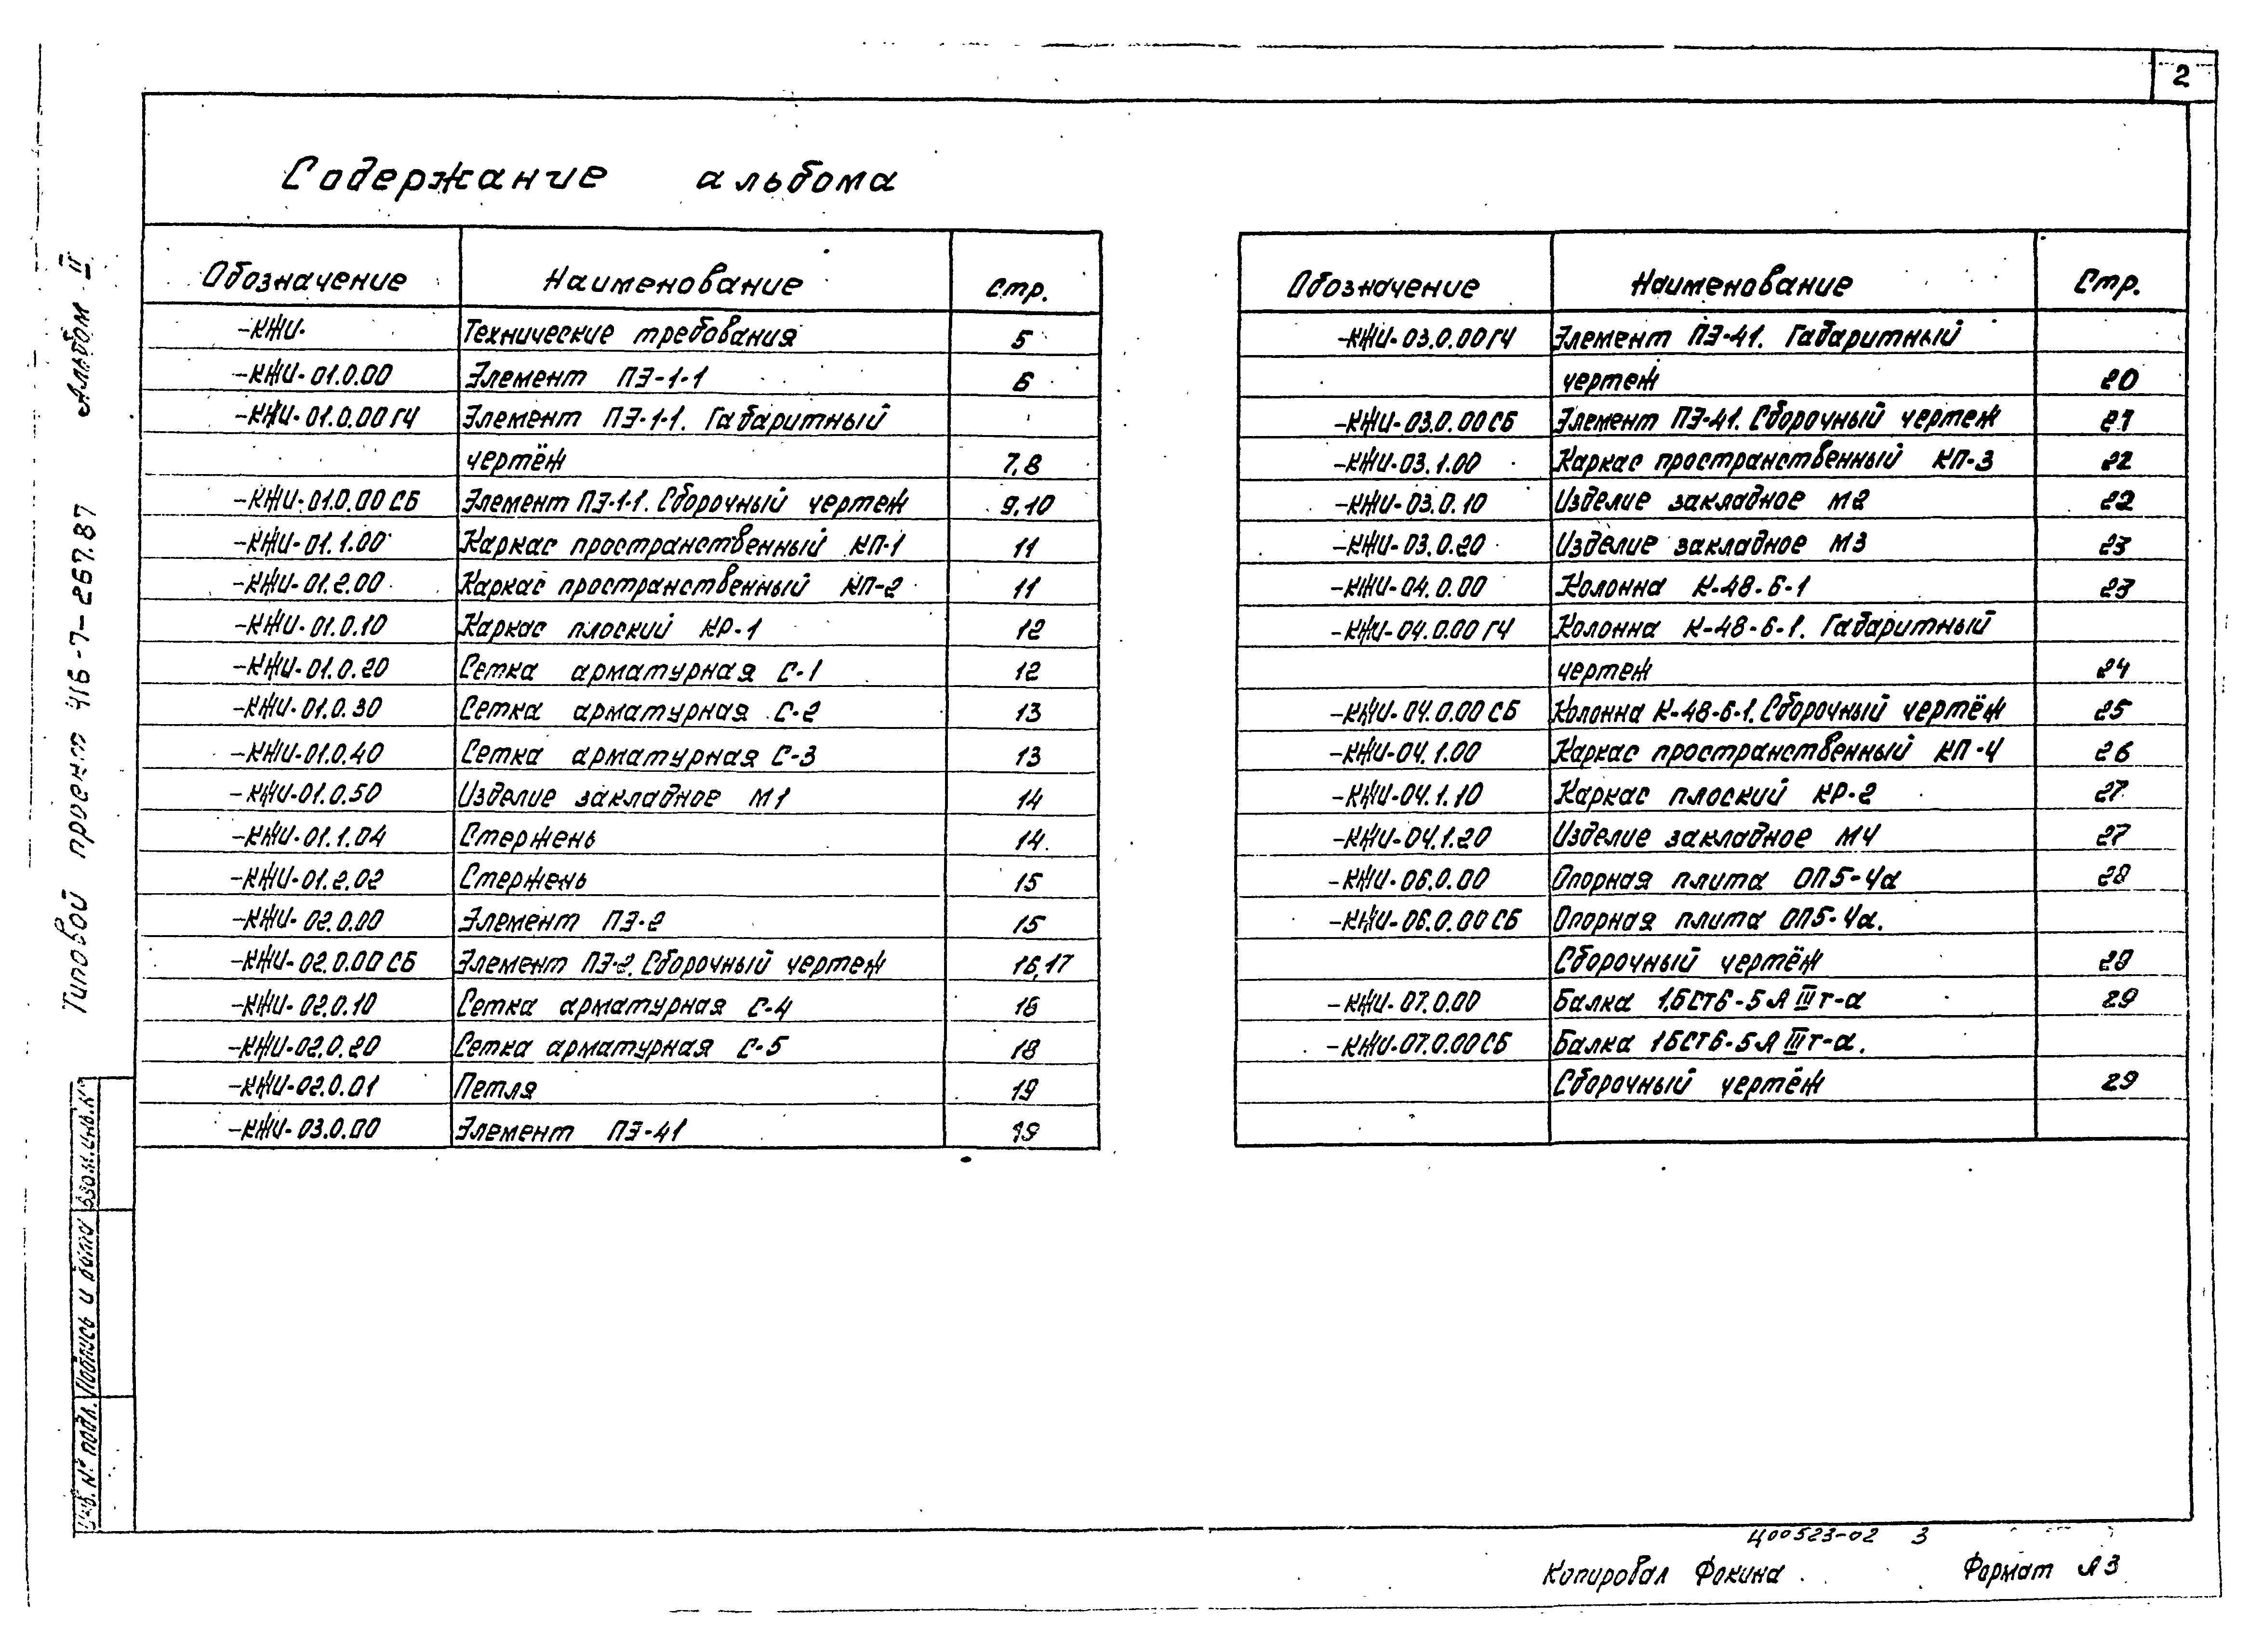 2
Содержание альбома
Обозначение Наименование стр.
-КЖИ- Технические требования 5
-КЖИ-01.0.00 Элемент ПЭ-1-1 6
-КЖИ-01.0.00 ГЧ Элемент ПЭ-1-1. Габаритный
чертёж 7,8
-КЖИ-01.0.00 СБ Элемент ПЭ-1-1. Сборочный чертеж 9,10
-КЖИ-01.1.00 Каркас пространственный КП-1 11
-КЖИ-01.2.00 Каркас пространственный КП-2 11
-КЖИ-01.0.10 Каркас плоский КР-1 12
-КЖИ-01.0.20 Сетка арматурная С-1 12
-КЖИ-01.0.30 Сетка арматурная С-2 13
-КЖИ-01.0.40 Сетка арматурная С-3 13
-КЖИ-01.0.50 Изделие закладное М1 14
-КЖИ-01.1.04 Стержень 14
-КЖИ-01.2.02 Стержень 15
-КЖИ-02.0.00 Элемент ПЭ-2 15
-КЖИ-02.0.00 СБ Элемент ПЭ-2. Сборочный чертеж 16,17
-КЖИ-02.0.10 Сетка арматурная С-4 18
-КЖИ-02.0.20 Сетка арматурная С-5 18
-КЖИ-02.0.01 Петля 19
-КЖИ-03.0.00 Элемент ПЭ-41 19
Обозначение Наименование Стр.
-КЖИ-03.0.00 ГЧ Элемент ПЭ-41. Габаритный
чертеж 20
-КЖИ-03.0.00 СБ Элемент ПЭ-41. Сборочный чертеж 21
-КЖИ-03.1.00 Каркас пространственный КП-3 22
-КЖИ-03.0.10 Изделие закладное М2 22
-КЖИ-03.0.20 Изделие закладное М3 23
-КЖИ-04.0.00 Колонна К-48-6-1 23
-КЖИ-04.0.00 ГЧ Колонна К-48-6-1. Габаритный
чертеж 24
-КЖИ-04.0.00 СБ Колонна К-48-6-1. Сборочный чертёж 25
-КЖИ-04.1.00 Каркас пространственный КП-4 26
-КЖИ-04.1.10 Каркас плоский КР-2 27
-КЖИ-04.1.20 Изделие закладное М4 27
-КЖИ-06.0.00 Опорная плита ОП5-4а 28
-КЖИ-06.0.00 СБ Опорная плита ОП5-4а.
Сборочный чертёж 28
-КЖИ-07.0.00 Балка 1БСТ6-5АIIIт-а 29
-КЖИ-07.0.00 СБ Балка 1БСТ6-5АIIIт-а.
Сборочный чертёж 29
Типовой проект 416-7-267.87 Альбом II
Инв. № подл. Подпись и дата Взам. инв. №
Ц00523-02 3
Копировал Фокина Формат А3